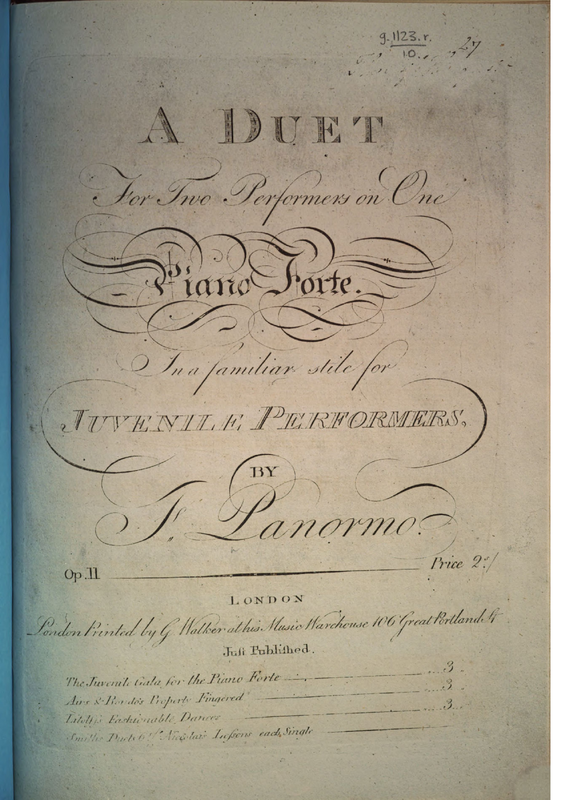 g.1123.r.
10.
27
A DUET
For Two Performers on One
Piano Forte.
In a familiar stile for
JUVENILE PERFORMERS,
BY
F. Panormo.
Op. 11 Price 2s/
LONDON
London Printed by G Walker at his Music Warehouse 106 Great Portland St
Just Published.
The Juvenile Gala, for the Piano Forte 3
Airs & Rondos Properly Fingered 3
Fashionable Dances 3
Duets Lessons each, Single